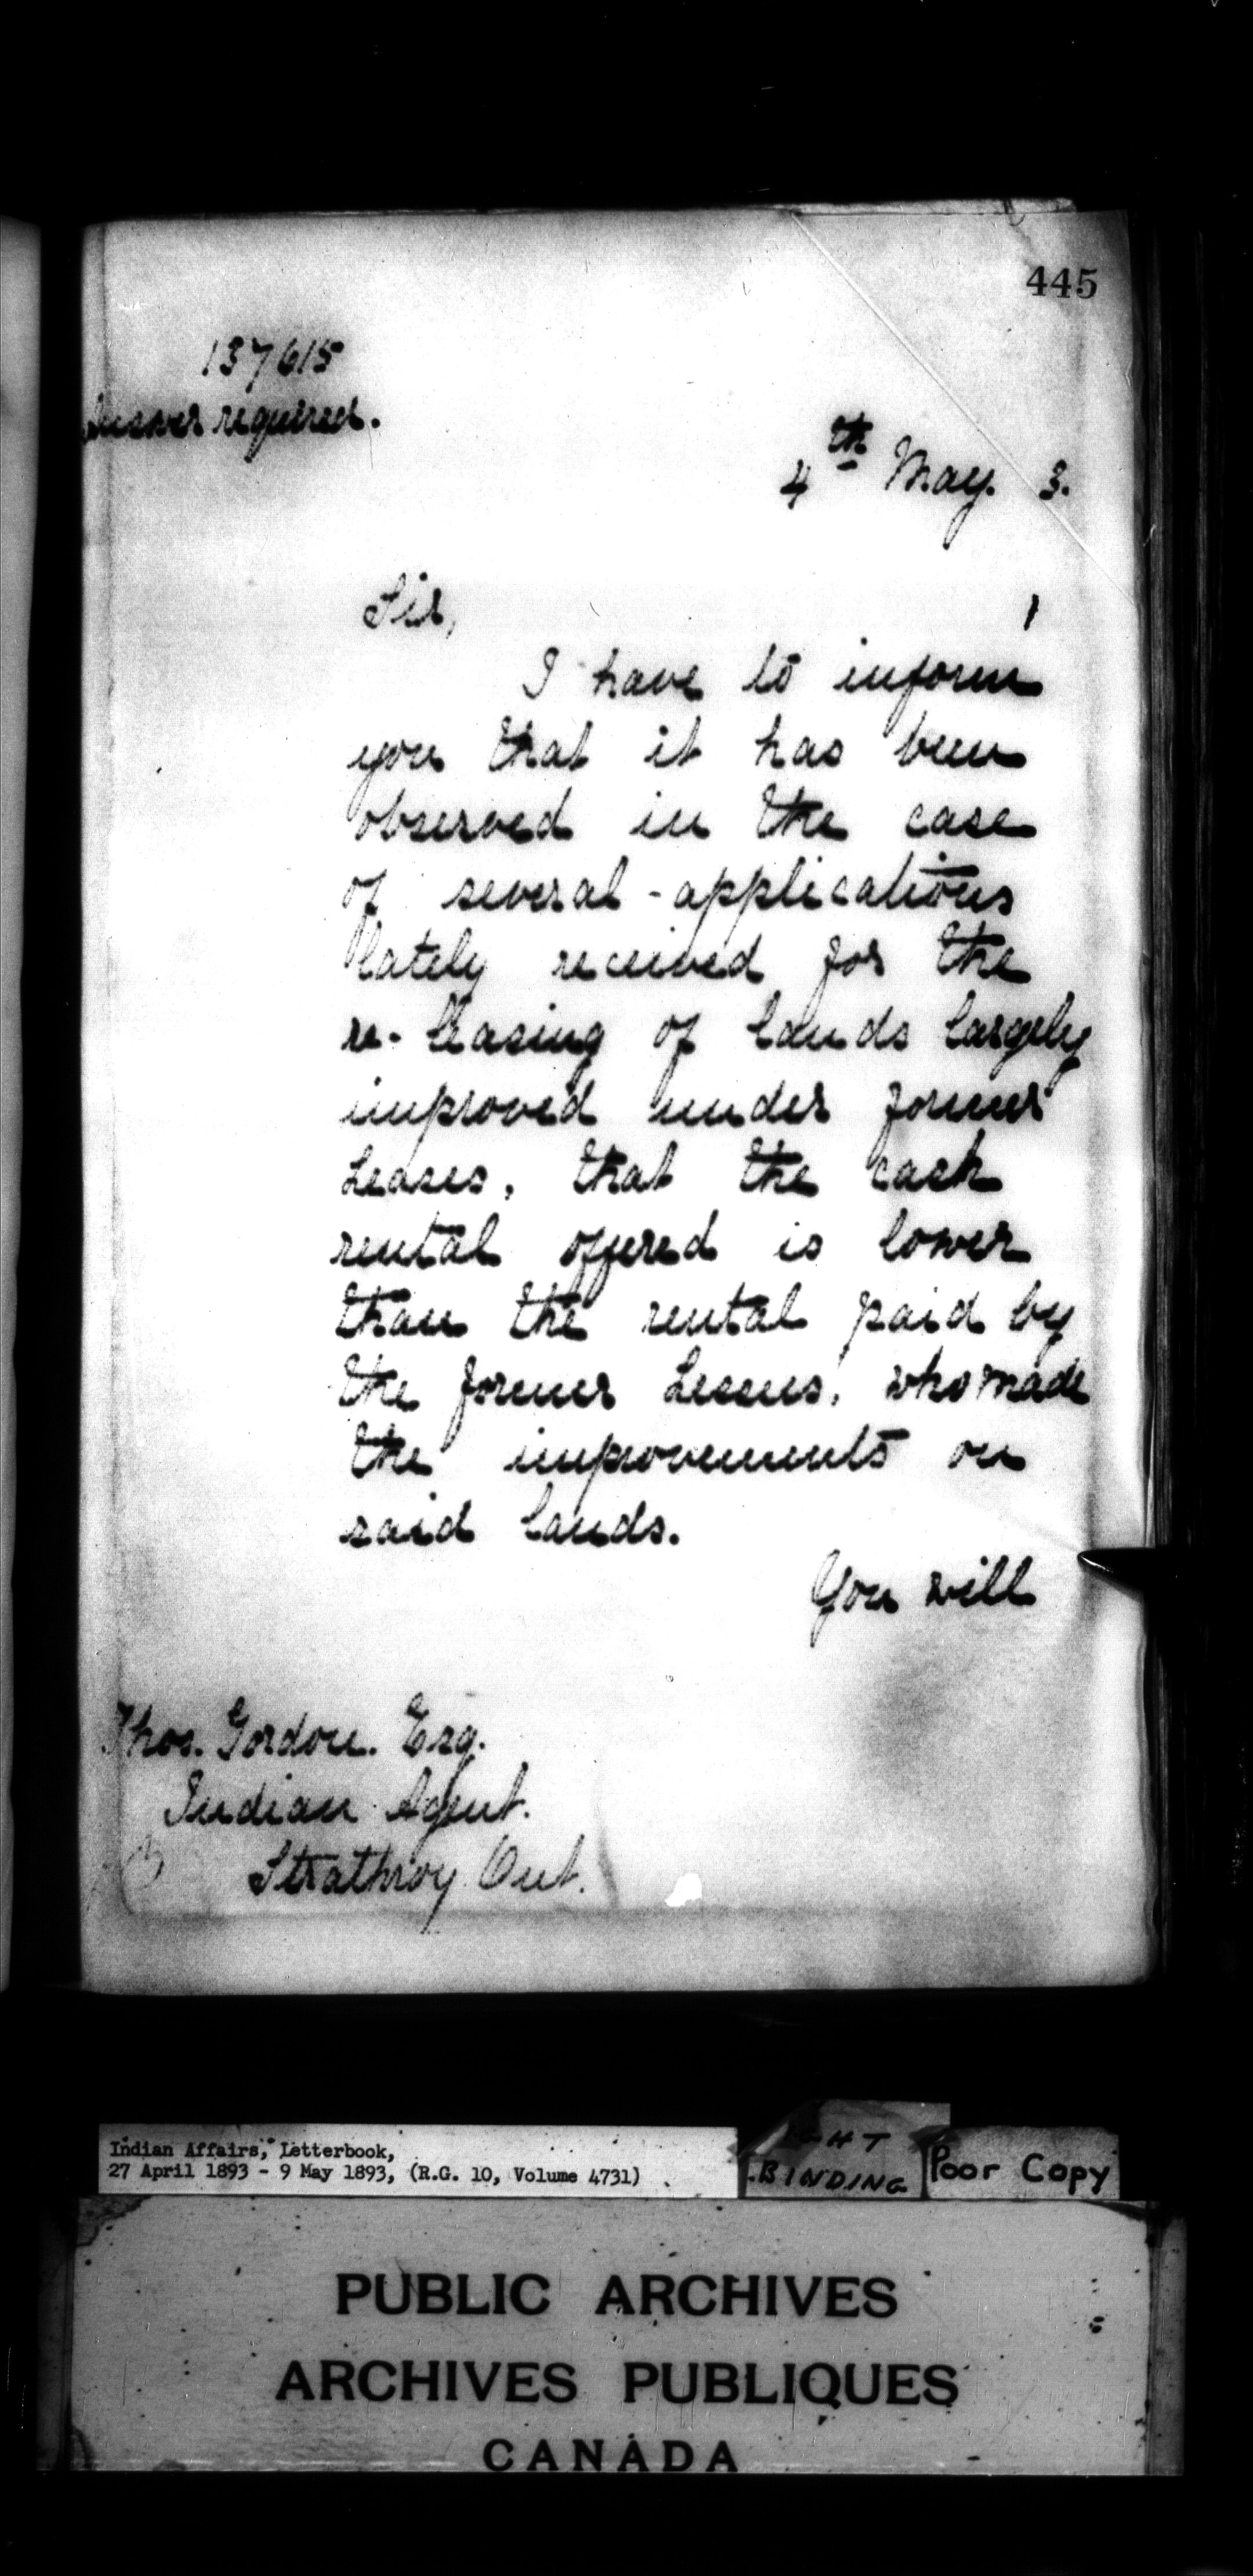 445
137615
Answer required.
4th May. 3.
Sir,
I have to inform
you that it has been
observed in the case
of several applications
lately received for the
re-leasing of lands largely
improved under former
Leases, that the cash
rental offered is lower
than the rental paid by
the former Lessees, who made
the improvements on
said lands.
You will
Thos. Gordon. Esq.
Indian Agent.
Strathroy Ont.
Indian Affairs, Letterbook,
27 April 1893 - 9 May 1893, (R.G. 10, Volume 4731)
BINDING
Poor Copy
PUBLIC ARCHIVES
ARCHIVES PUBLIQUES
CANADA